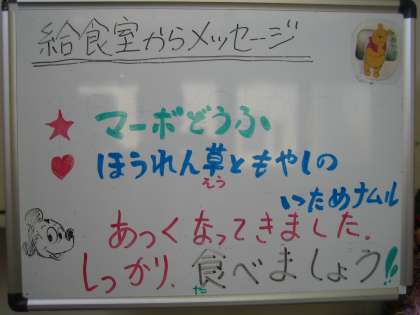 給食室からメッセージ
★ マーボどうふ
♥ ほうれん草ともやしの
いためナムル
あつくなってきました。
しっかり、食べましょう!!